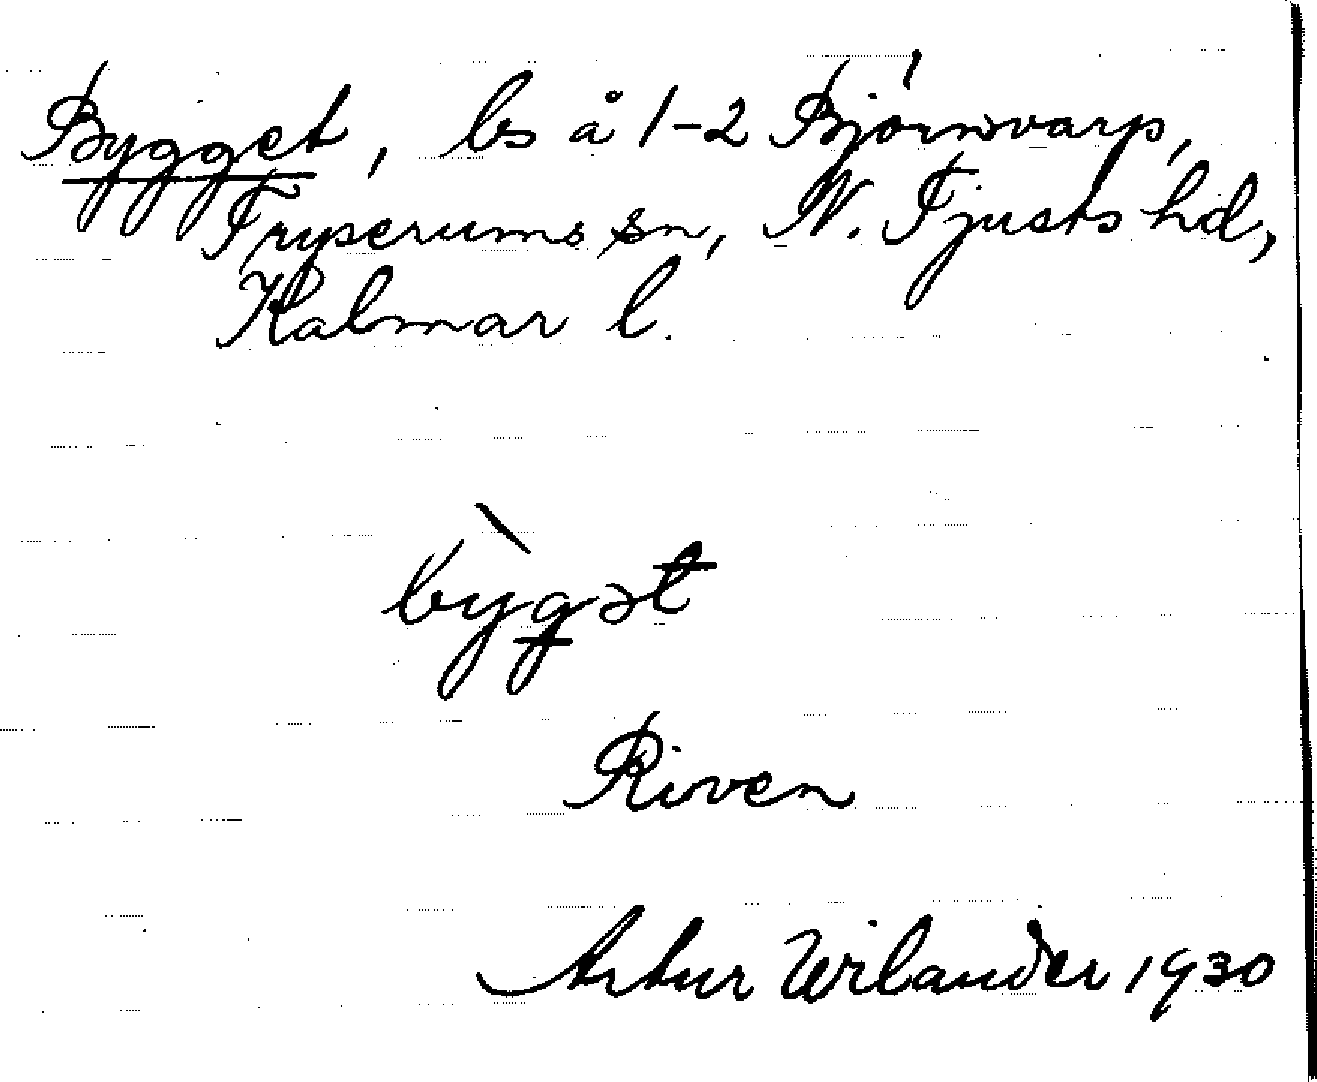 Bygget, ls å 1-2 Björnvarp,
Fryserums sn, N. Tjusts hd,
Kalmar l.
bỳgət
Riven
Artur Wilander 1930